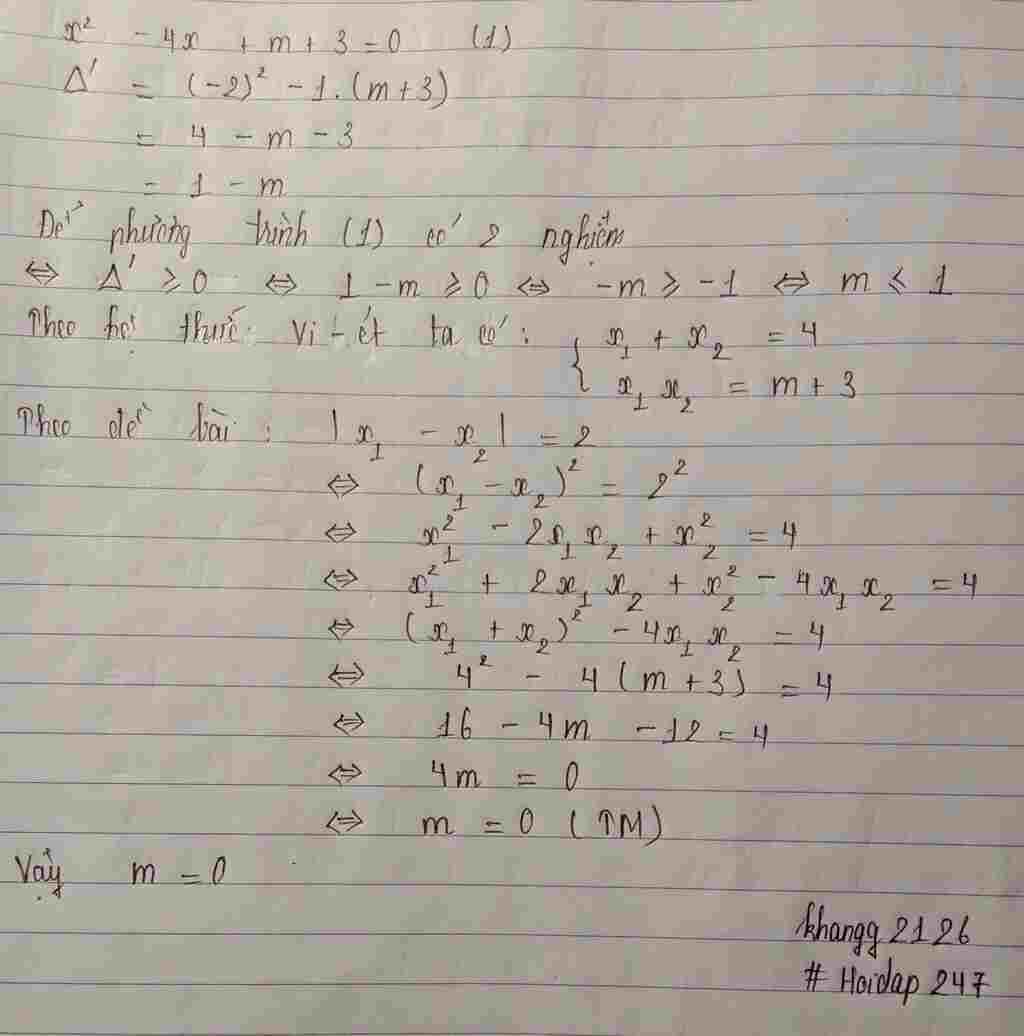 x² - 4x + m + 3 = 0 (1)
Δ' = (-2)² - 1.(m+3)
= 4 - m - 3
= 1 - m
Để phương trình (1) có 2 nghiệm
⇔ Δ' ≥ 0 ⇔ 1 - m ≥ 0 ⇔ -m ≥ -1 ⇔ m ≤ 1
Theo hệ thức Vi-ét ta có: { x₁ + x₂ = 4
x₁ x₂ = m + 3
Theo đề bài: |x₁ - x₂| = 2
⇔ (x₁ - x₂)² = 2²
⇔ x₁² - 2x₁x₂ + x₂² = 4
⇔ x₁² + 2x₁x₂ + x₂² - 4x₁x₂ = 4
⇔ (x₁ + x₂)² - 4x₁x₂ = 4
⇔ 4² - 4(m+3) = 4
⇔ 16 - 4m - 12 = 4
⇔ 4m = 0
⇔ m = 0 (TM)
Vậy m = 0
khangg 2126
# Hoidap 247